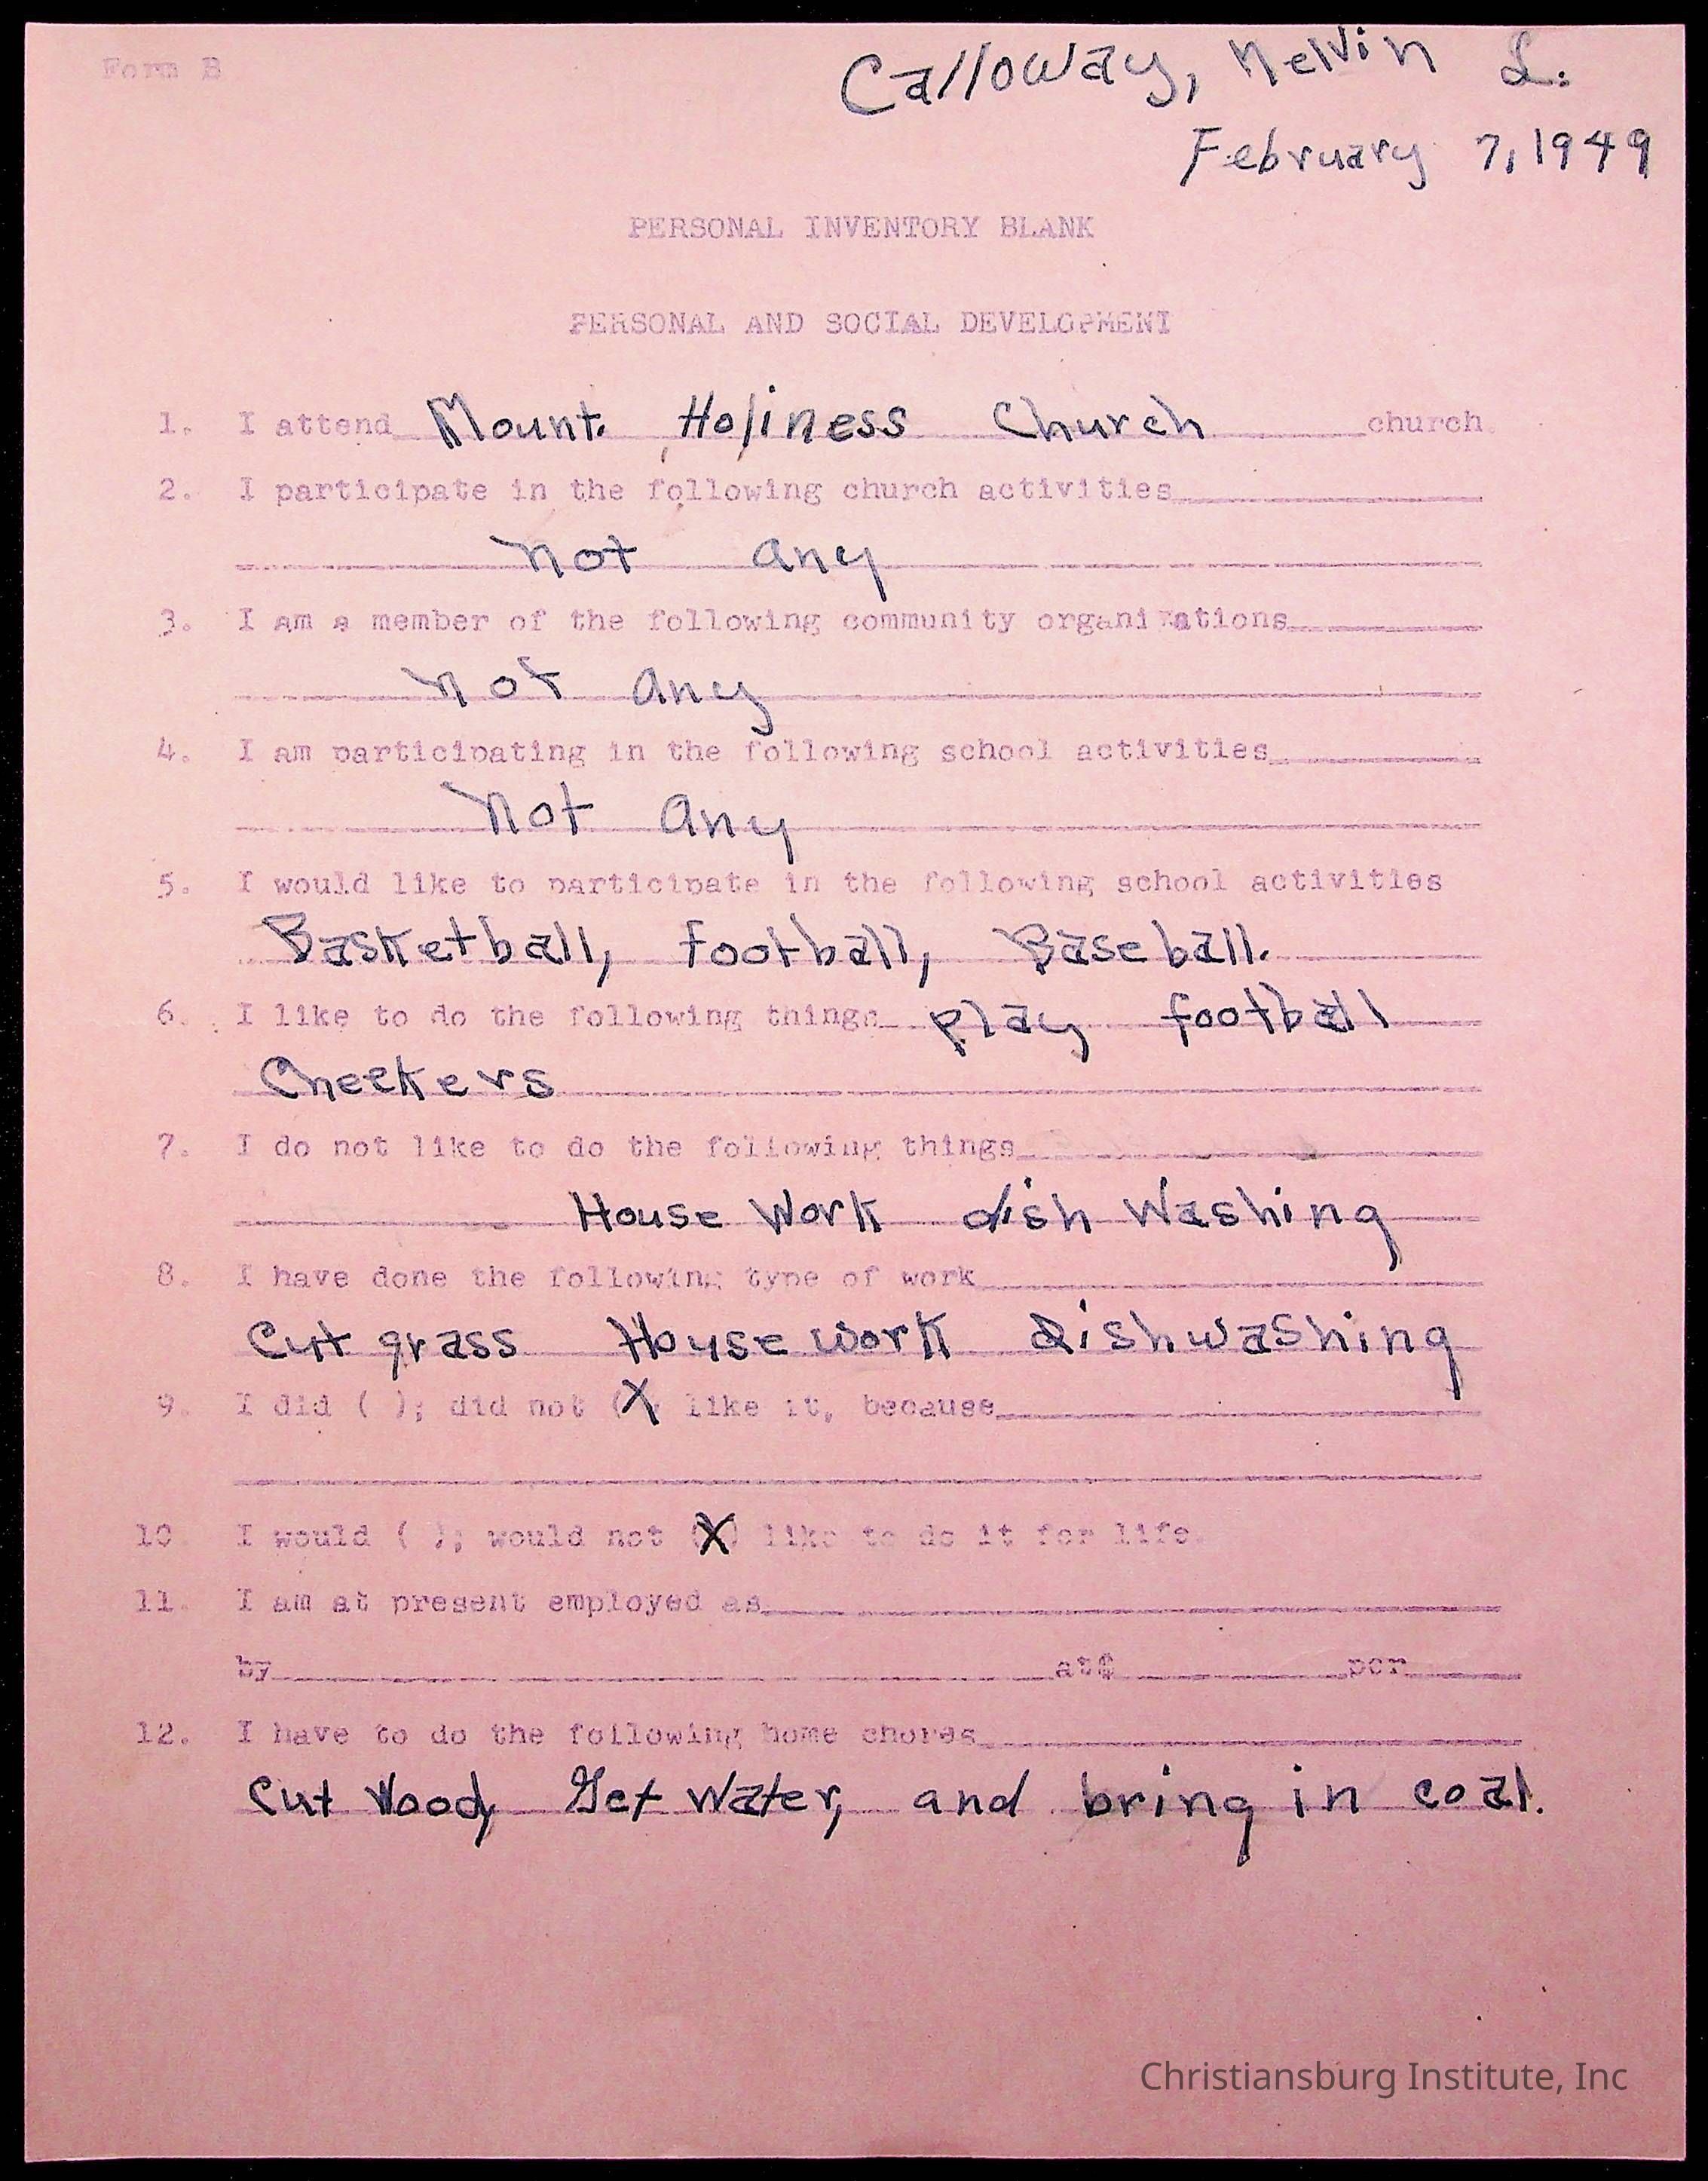 Form B
Calloway, Melvin L.
February 7, 1949
PERSONAL INVENTORY BLANK
PERSONAL AND SOCIAL DEVELOPMENT
1. I attend Mount. Holiness Church church.
2. I participate in the following church activities
not any
3. I am a member of the following community organizations
not any
4. I am participating in the following school activities
not any
5. I would like to participate in the following school activities
Basketball, football, Baseball.
6. I like to do the following things play football
Cheekers
7. I do not like to do the following things
House Work dish Washing
8. I have done the following type of work
Cut grass House work dishwashing
9. I did ( ); did not (X) like it, because
10. I would ( ); would not (X) like to do it for life.
11. I am at present employed as
by at$ per
12. I have to do the following home chores
Cut Wood, Get Water, and bring in coal.
Christiansburg Institute, Inc